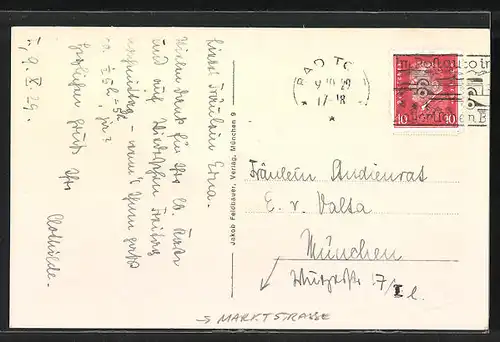 T, 9. X. 29.
Liebes Fräulein Erna.
Vielen Dank für Ihre lb. Karte
und auf Wiedersehen Freitag
nachmittag – wenn's Ihnen paßt
ca. ½ 5h – 5h, ja?
Herzlichen Gruß Ihre
Clothilde.
Jakob Feldbauer, Verlag, München 9
BAD TÖ
9 29
17-18
10 10
Fräulein Studienrat
E. v. Valta
München
17/I l.
→ MARKTSTRASSE